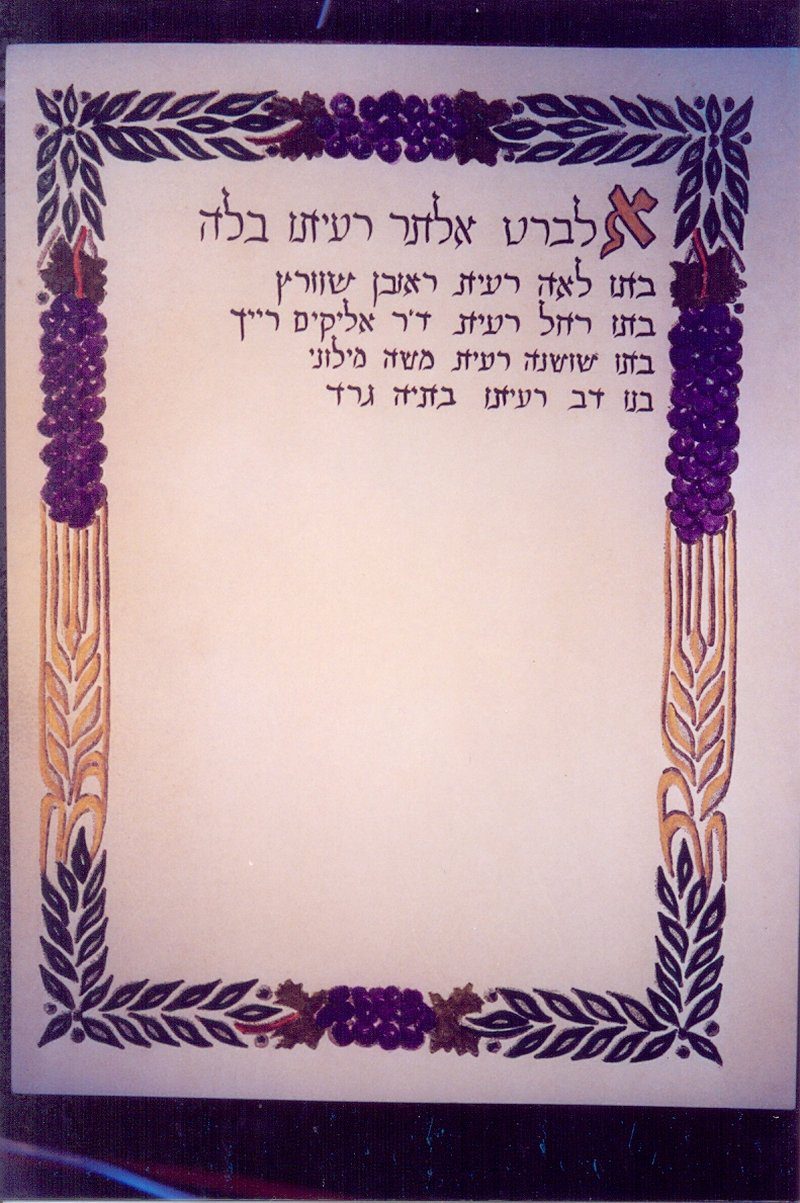 אלברט אלתר רעיתו בלה
בתו לאה רעית ראובן שוורץ
בתו רחל רעית ד'ר אליקים רייך
בתו שושנה רעית משה מילוני
בנו דב רעיתו בתיה גרד